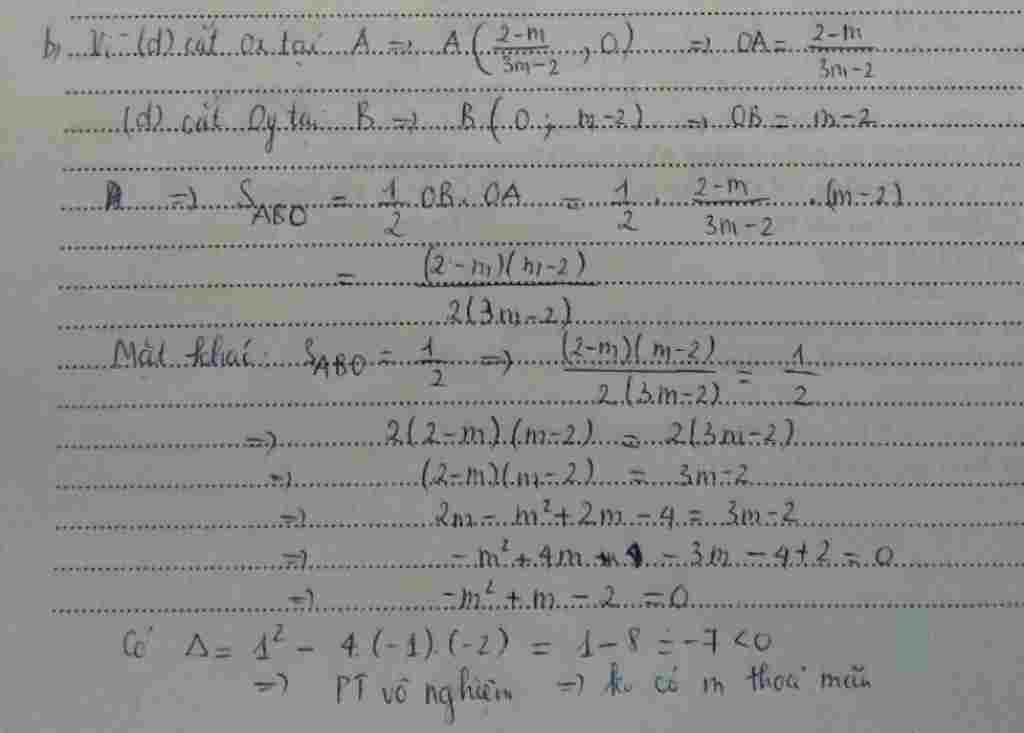 b, Vì (d) cắt Ox tại A => A(2-m/3m-2, 0) => OA = 2-m/3m-2
(d) cắt Oy tại B => B(0; m-2) => OB = m-2
=> S_ABO = 1/2 OB. OA = 1/2 . 2-m/3m-2 . (m-2)
= (2-m)(m-2)/2(3m-2)
Mặt khác: S_ABO = 1/2 => (2-m)(m-2)/2(3m-2) = 1/2
=> 2(2-m).(m-2) = 2(3m-2)
=> (2-m)(m-2) = 3m-2
=> 2m - m² + 2m - 4 = 3m-2
=> -m² + 4m - 3m - 4+2 = 0
=> -m² + m - 2 = 0
Có Δ = 1² - 4.(-1).(-2) = 1-8 = -7 <0
=> PT vô nghiệm => k. có m thoả mãn